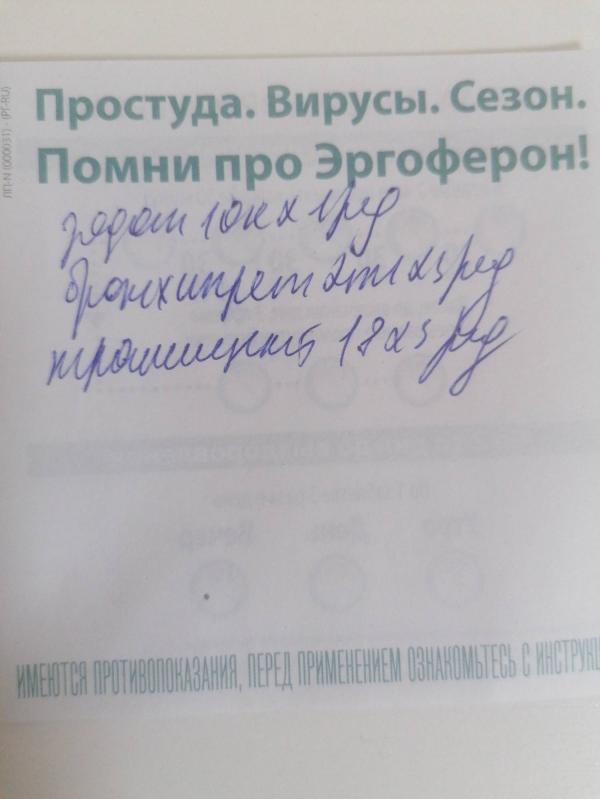 ЛП-N (000031) - (РГ-RU)
Простуда. Вирусы. Сезон.
Помни про Эргоферон!
10к х 1 рд
бронхипрет 2т х 3 рд
1 х 3 рд
ИМЕЮТСЯ ПРОТИВОПОКАЗАНИЯ, ПЕРЕД ПРИМЕНЕНИЕМ ОЗНАКОМЬТЕСЬ С ИНСТРУКЦ